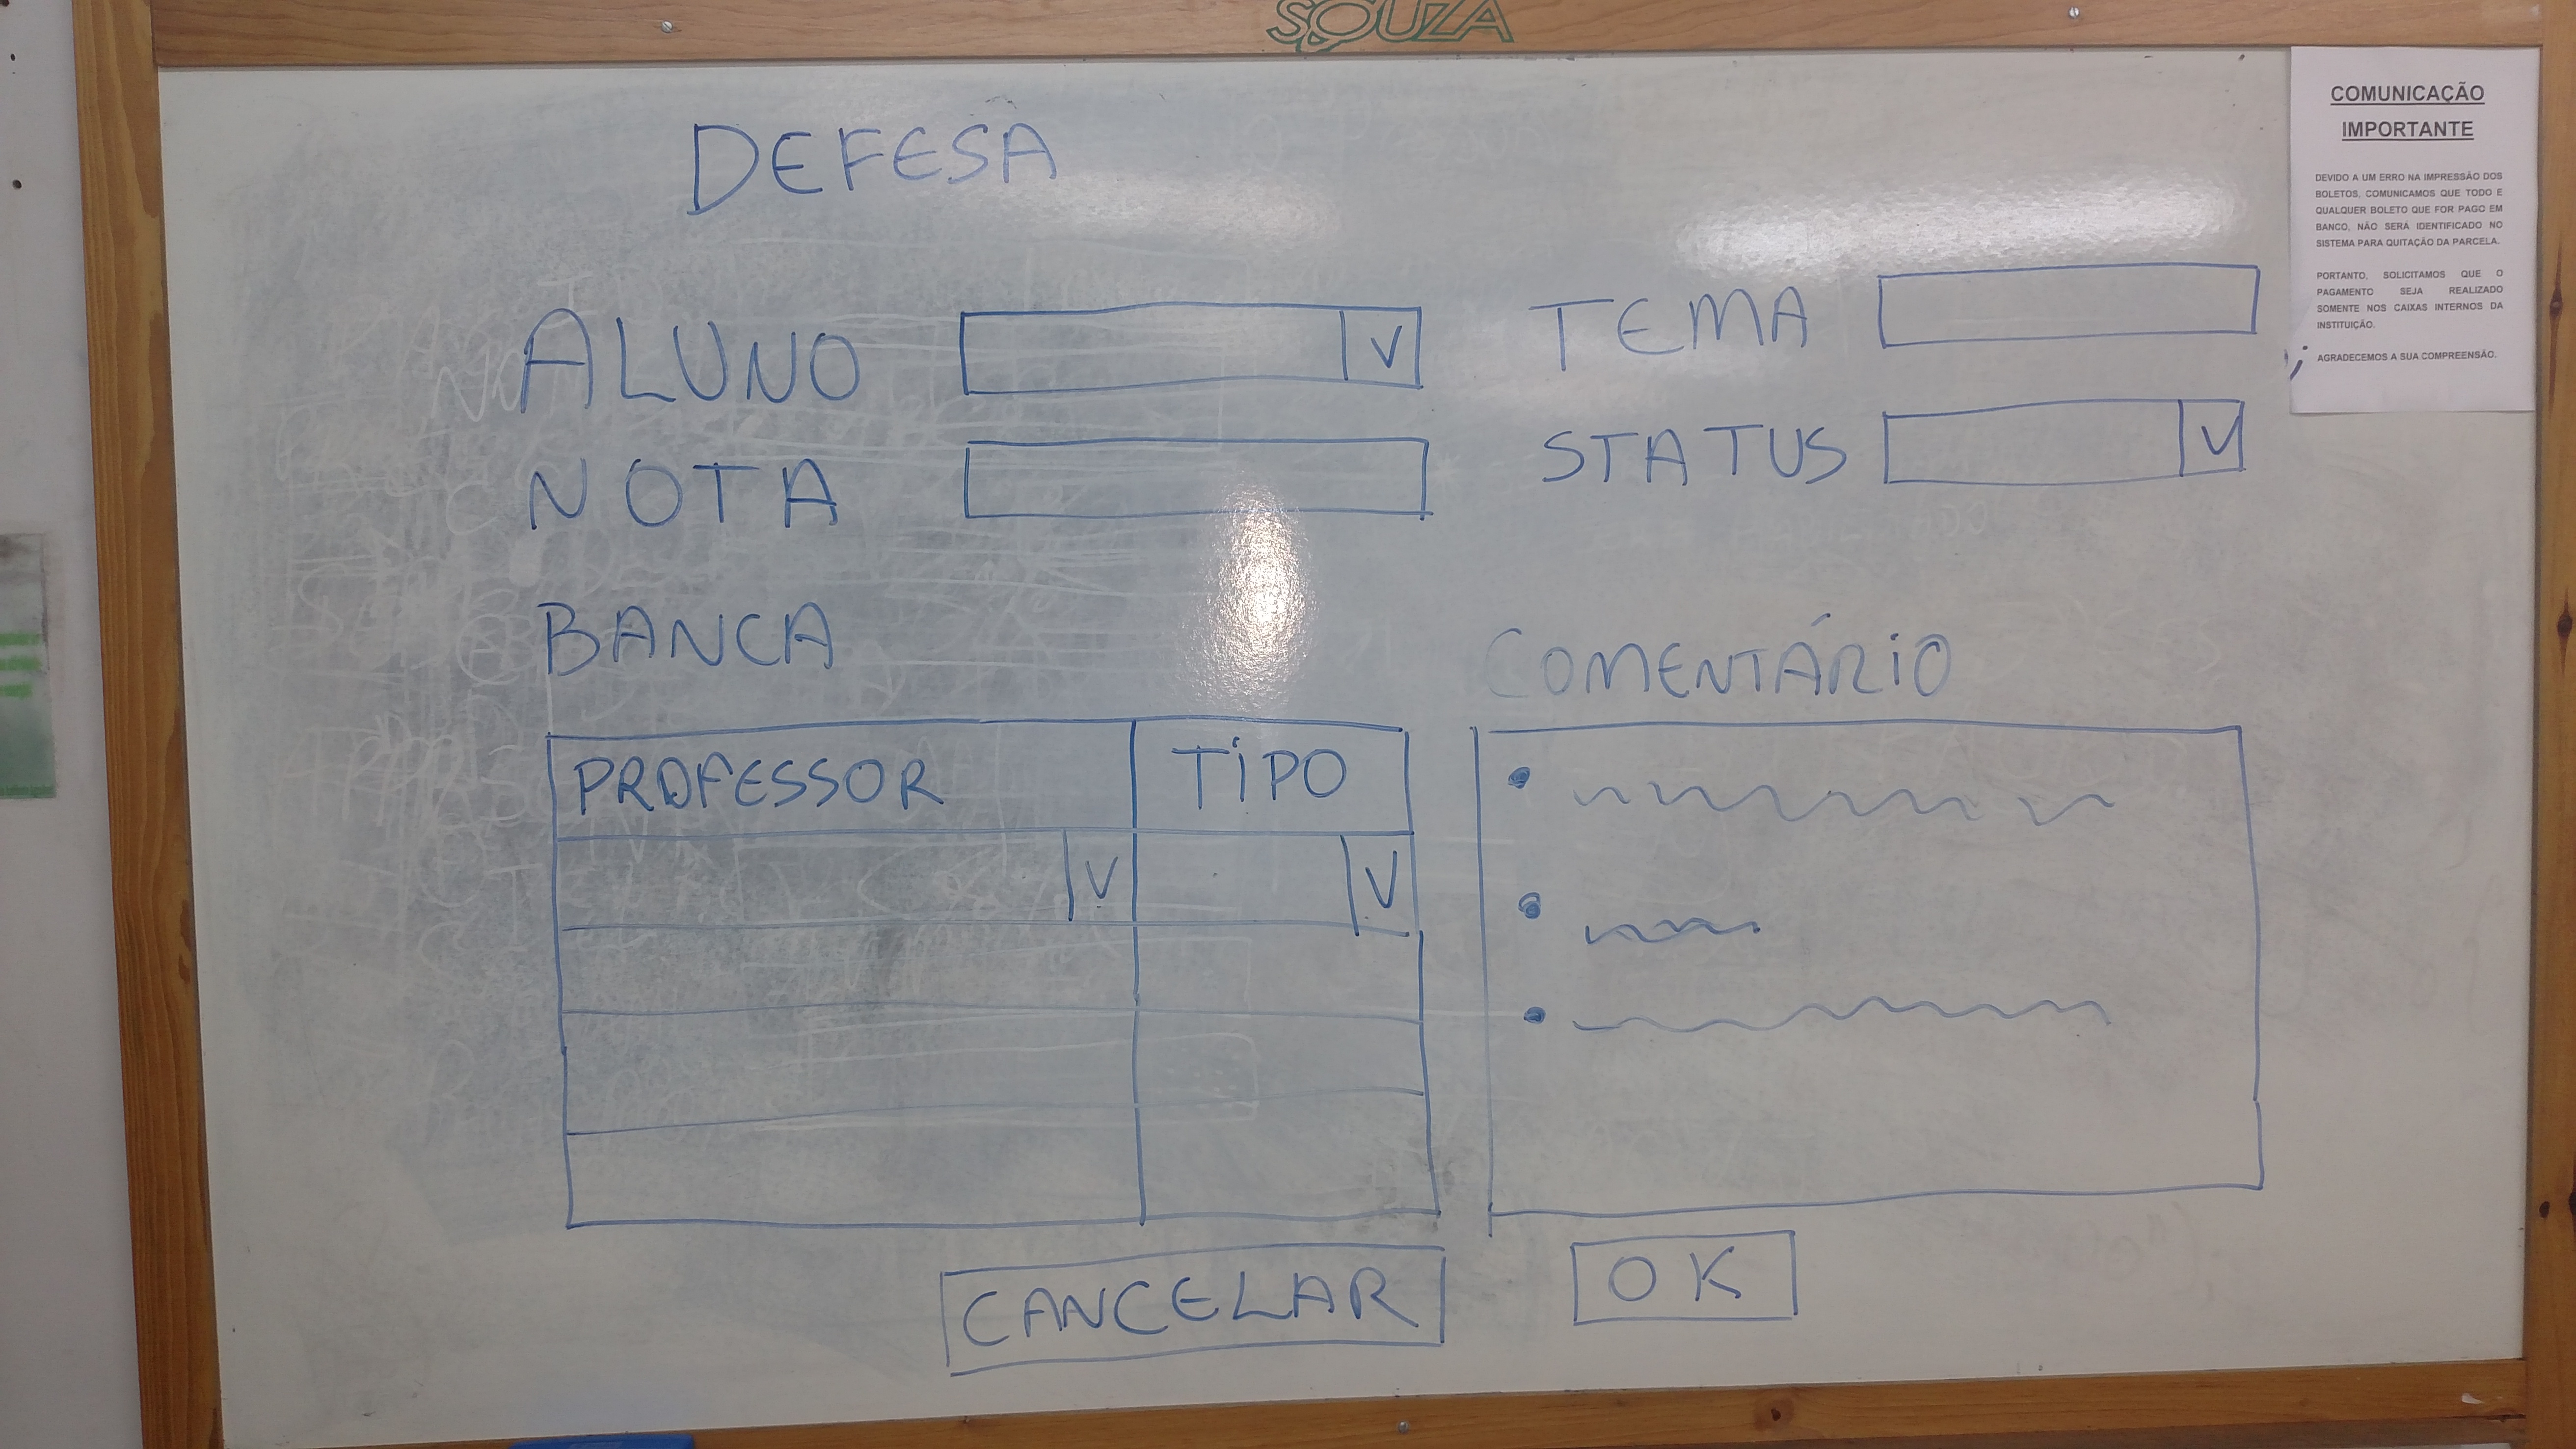 SOUZA
DEFESA
ALUNO V TEMA
NOTA STATUS V
BANCA COMENTÁRIO
PROFESSOR TIPO
V V
CANCELAR OK
COMUNICAÇÃO
IMPORTANTE
DEVIDO A UM ERRO NA IMPRESSÃO DOS
BOLETOS, COMUNICAMOS QUE TODO E
QUALQUER BOLETO QUE FOR PAGO EM
BANCO, NÃO SERÁ IDENTIFICADO NO
SISTEMA PARA QUITAÇÃO DA PARCELA.
PORTANTO, SOLICITAMOS QUE O
PAGAMENTO SEJA REALIZADO
SOMENTE NOS CAIXAS INTERNOS DA
INSTITUIÇÃO.
AGRADECEMOS A SUA COMPREENSÃO.